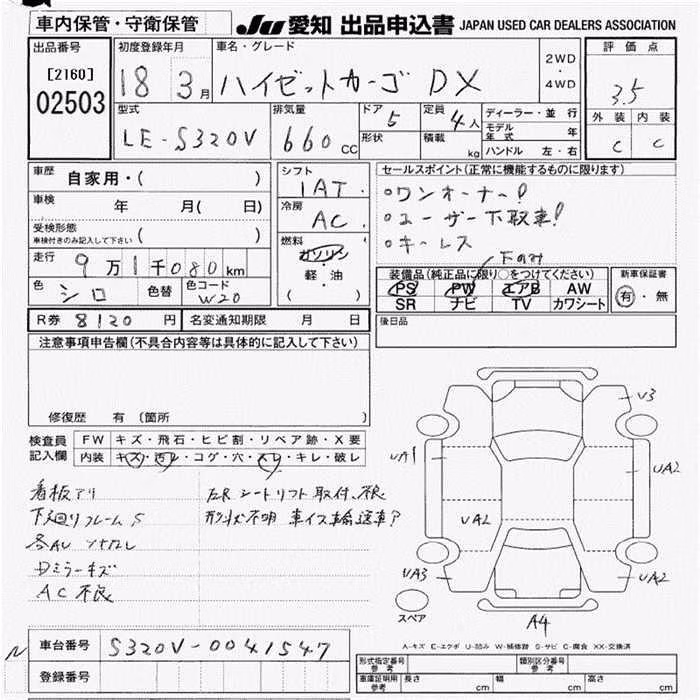 車内保管・守衛保管
JU 愛知 出品申込書 JAPAN USED CAR DEALERS ASSOCIATION
出品番号
[2160]
02503
初度登録年月
18 3月
車名・グレード
ハイゼットカーゴ DX
2WD
・
4WD
評価点
3.5
外装 内装
C C
型式
LE-S320V
排気量
660 CC
ドア 5
形状
定員 4人
積載 kg
ディーラー・並行
モデル年式 年
ハンドル 左・右
車歴 自家用・( )
車検 年 月( 日)
受検形態
車検付きのみ記入して下さい ( )
走行 9万1千080km
色 シロ
色替
色コード W20
シフト
IAT
冷房
AC
燃料
ガソリン
・
軽・油
( )
セールスポイント(正常に機能するものに限ります)
○ワンオーナー!
○ユーザー下取車!
○キーレス
下のみ
装備品(純正品に限り○をつけてください)
PS PW エアB AW
SR ナビ TV カワシート
新車保証書
有・無
後日品
R券 8120 円
名変通知期限 月 日
注意事項申告欄(不具合内容等は具体的に記入して下さい)
修復歴 有(箇所 )
検査員
記入欄
FW キズ・飛石・ヒビ割・リペア跡・X要
内装 キズ・汚レ・コゲ・穴・スレ・キレ・破レ
看板アリ
下廻りフレームS
各AU
Dミラーキズ
AC不良
シートリフト取付、不良
形状不明 車イス輸送車?
V3
UA1
UA2
UA2
UA3
UA2
A4
スペア
A-キズ E-エクボ U-凹み W-補修跡 S-サビ C-腐食 XX-交換済
車台番号 S320V-0041547
登録番号
N
形式指定番号
参考
類別区分番号
参考
車庫証明用
参考
長さ cm 幅 cm 高さ cm